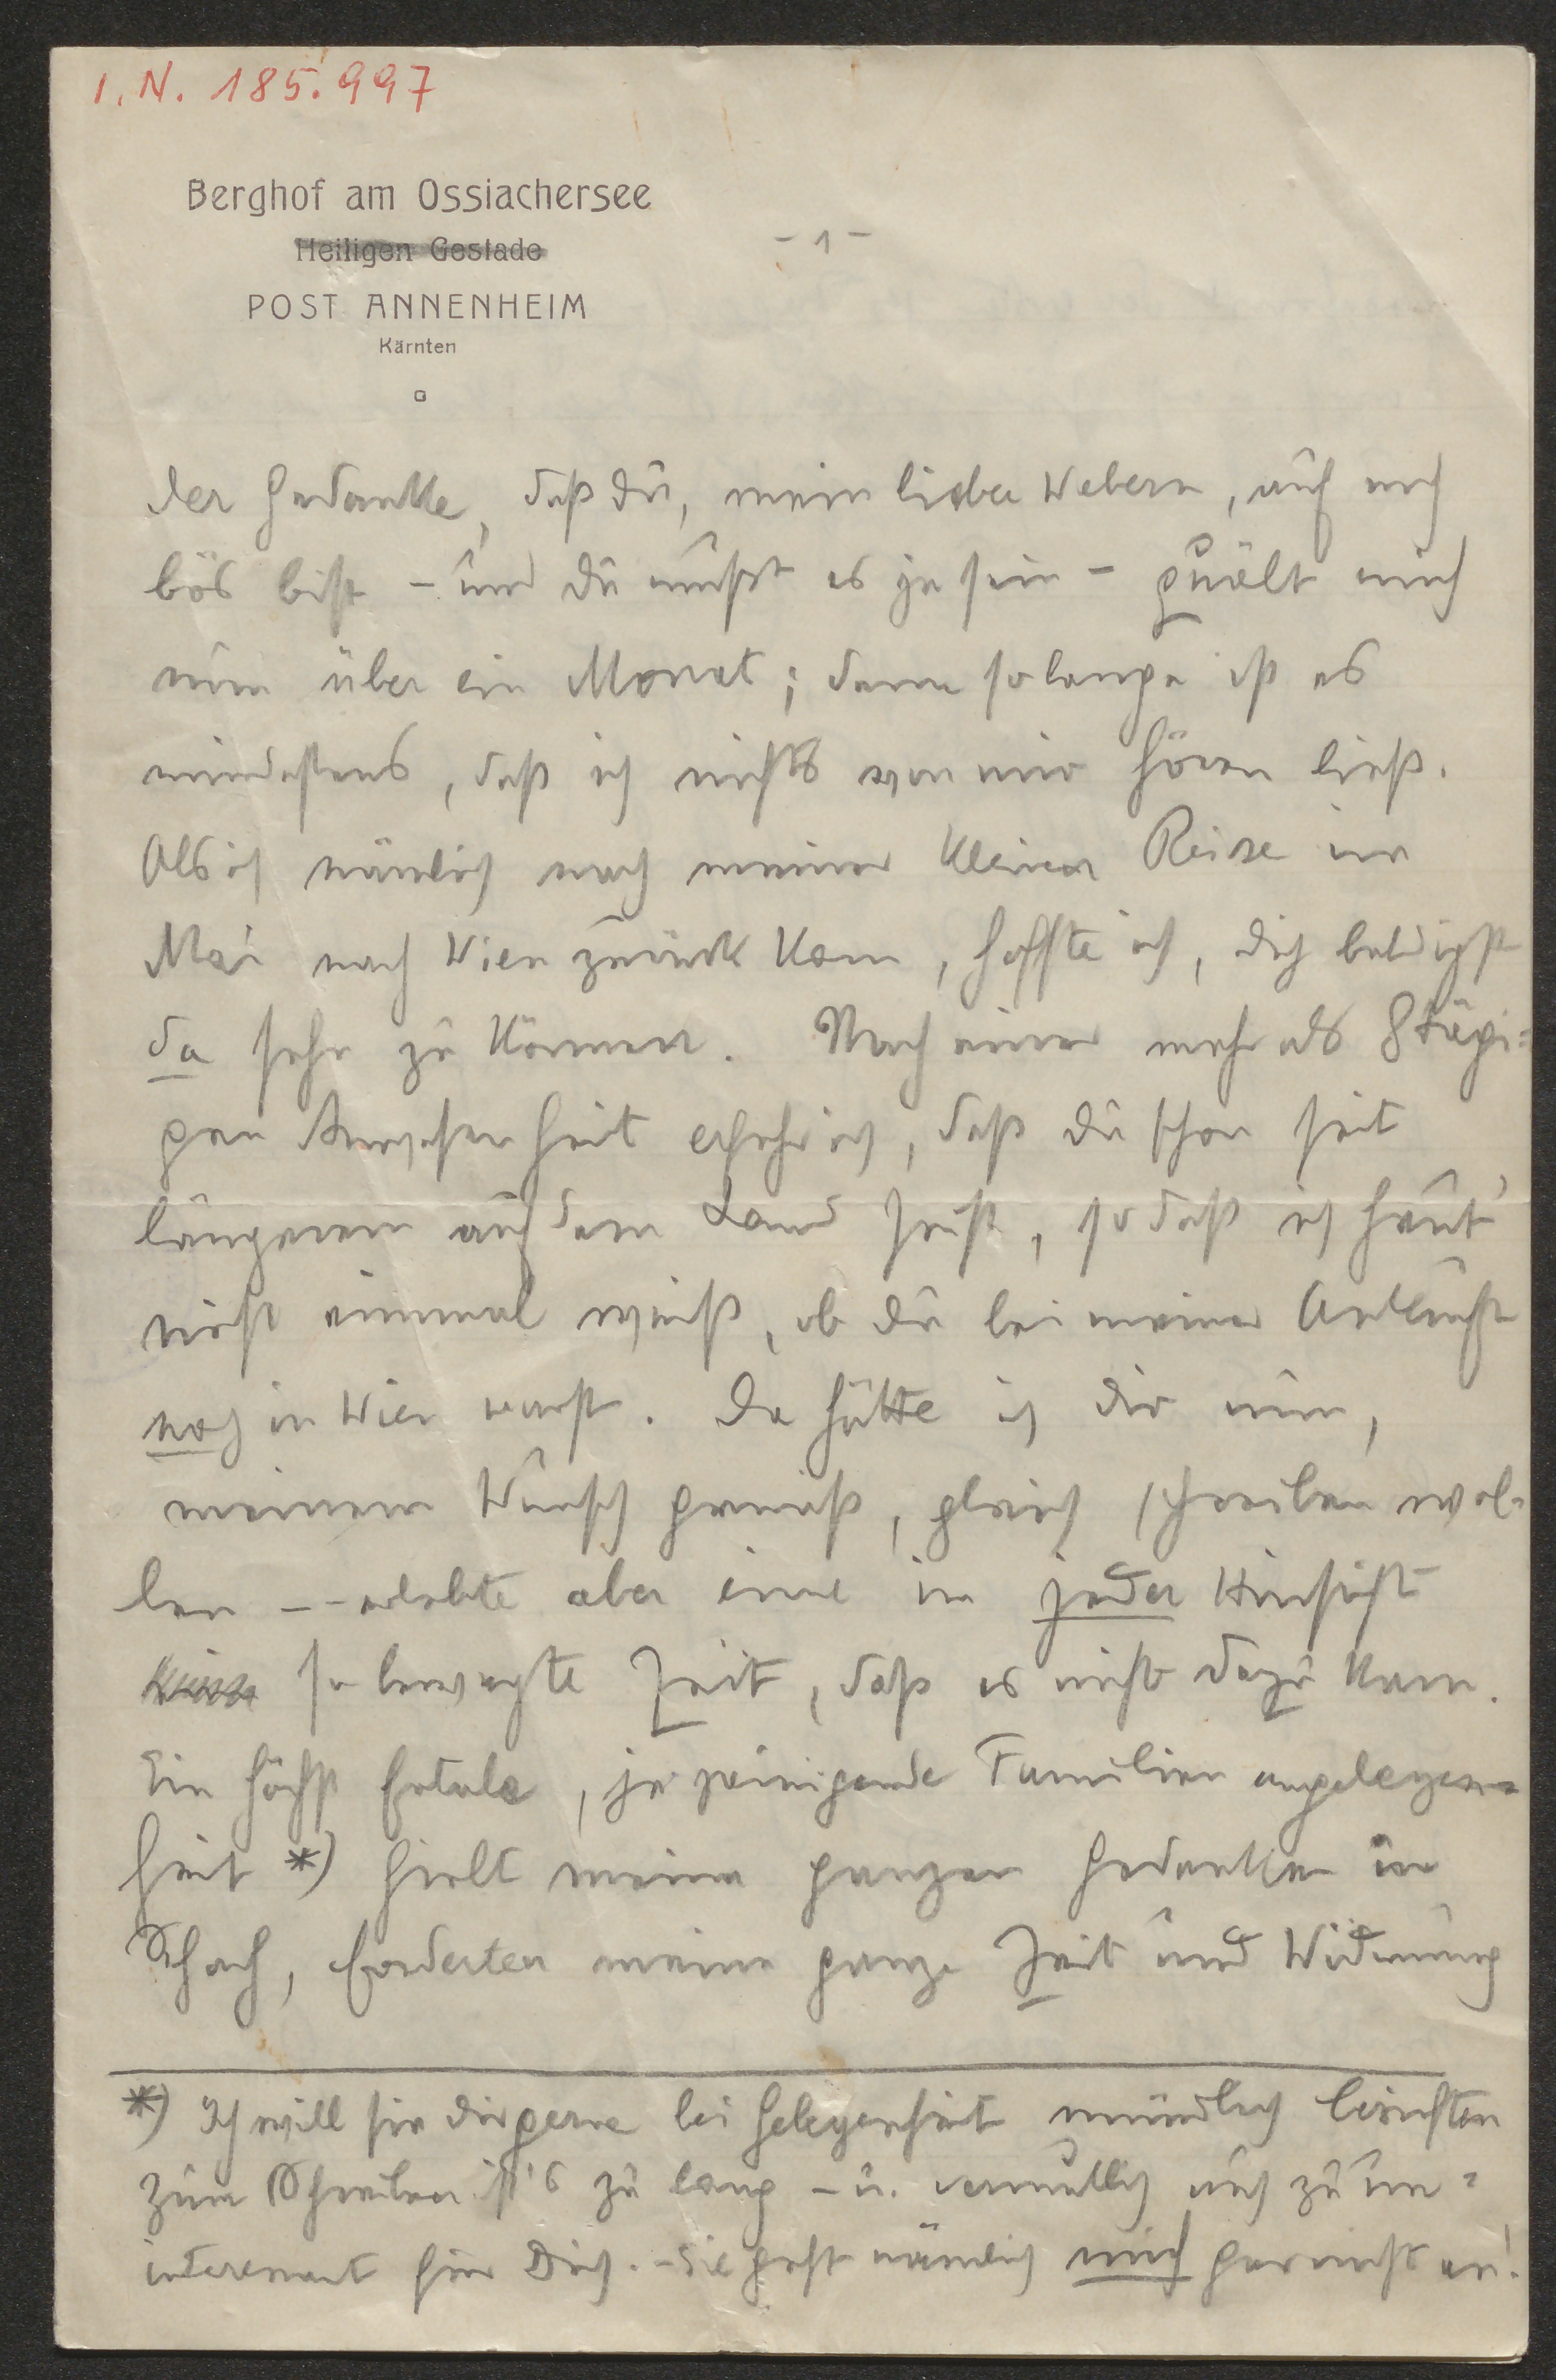 I. N. 185.997
Berghof am Ossiachersee
Heiligen Gestade
- 1 -
POST ANNENHEIM
Kärnten
Der Gedanke, daß du, mein lieber Webern, auf mich
bös bist – und du mußt es ja sein – quält mich
nun über ein Monat; denn solange ist es
mindestens, daß ich nichts von mir hören ließ.
Als ich nämlich nach meiner kleinen Reise im
Mai nach Wien zurück kam, hoffte ich, dich baldigst
da sehn zu können. Nach einer mehr als 8 tägi=
gen Anwesenheit erfuhr ich, daß du schon seit
längerem auf dem Land seist, so daß ich heut'
nicht einmal weiß, ob du bei meiner Ankunft
noch in Wien warst. Da hätte ich dir nun,
meinem Wunsch gemäß, gleich schreiben wol-
len -- erlebte aber eine in jeder Hinsicht
so bewegte Zeit, daß es nicht dazu kam.
Ein höchst fatale, ja peinigende Familienangelegen=
heit *) hielt meine ganzen Gedanken in
Schach, forderten meine ganze Zeit und Widmung
*) Ich will sie dir gerne bei Gelegenheit mündlich berichten
zum Schreiben ist's zu lang – u. vermutlich auch zu un=
interessant für Dich. – Sie geht nämlich mich garnicht an!